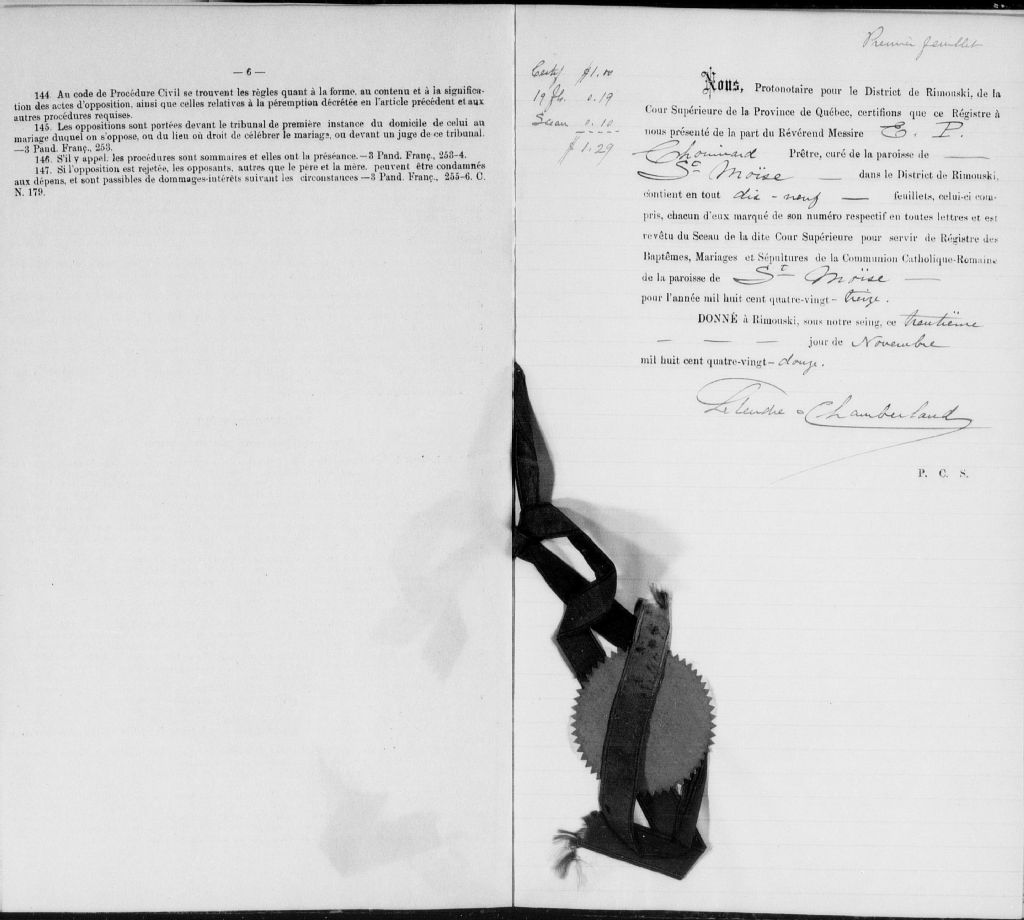 — 6 —
144. Au code de Procédure Civil se trouvent les règles quant à la forme, au contenu et à la significa-
tion des actes d'opposition, ainsi que celles relatives à la péremption décrétée en l'article précédent et aux
autres procédures requises.
145. Les oppositions sont portées devant le tribunal de première instance du domicile de celui au
mariage duquel on s'oppose, ou du lieu où droit de célébrer le mariage, ou devant un juge de ce tribunal.
—3 Pand. Franç., 253.
146. S'il y appel, les procédures sont sommaires et elles ont la préséance.—3 Pand. Franç., 253-4.
147. Si l'opposition est rejetée, les opposants, autres que le père et la mère, peuvent être condamnés
aux dépens, et sont passibles de dommages-intérêts suivant les circonstances—3 Pand. Franç., 255-6. C.
N. 179.
Premier feuillet
Certf $1.00
19 fls. 0.19
Sceau 0.10
$1.29
Nous, Protonotaire pour le District de Rimouski, de la
Cour Supérieure de la Province de Québec, certifions que ce Régistre à
nous présenté de la part du Révérend Messire E. P.
Chouinard Prêtre, curé de la paroisse de —
St Moïse — dans le District de Rimouski,
contient en tout dix-neuf — feuillets, celui-ci com-
pris, chacun d'eux marqué de son numéro respectif en toutes lettres et est
revêtu du Sceau de la dite Cour Supérieure pour servir de Régistre des
Baptêmes, Mariages et Sépultures de la Communion Catholique-Romaine
de la paroisse de St Moïse —
pour l'année mil huit cent quatre-vingt-treize.
DONNÉ à Rimouski, sous notre seing, ce trentième
— — — jour de Novembre
mil huit cent quatre-vingt-douze.
Letendre & Chamberland
P. C. S.